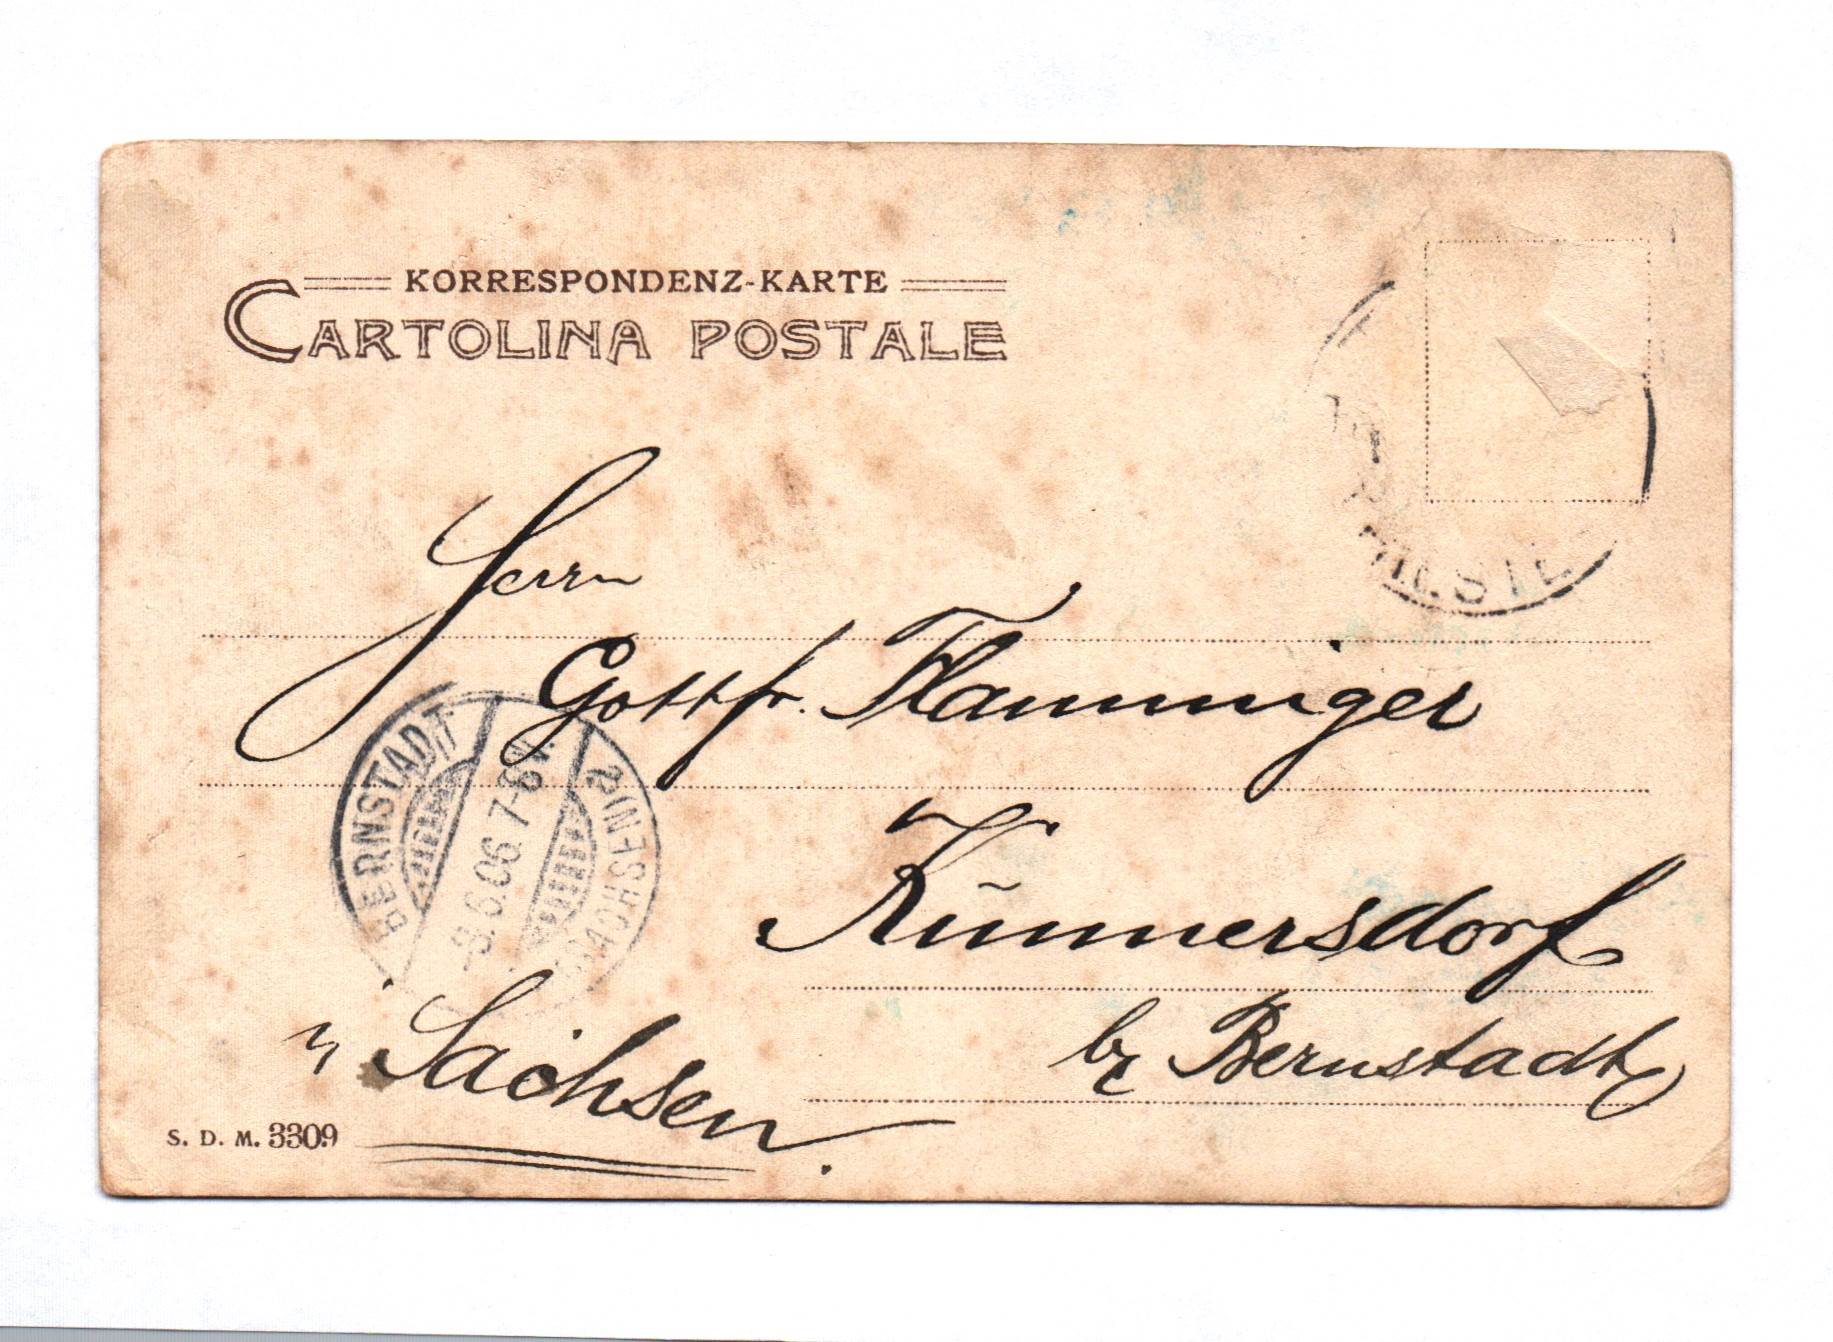 KORRESPONDENZ-KARTE
CARTOLINA POSTALE
Herrn
Gottfr. Flamminger
BERNSTADT
-8.6.06.7-8V.
SACHSEN
Kunnersdorf
b/ Bernstadt
i/ Sachsen.
S. D. M. 3309